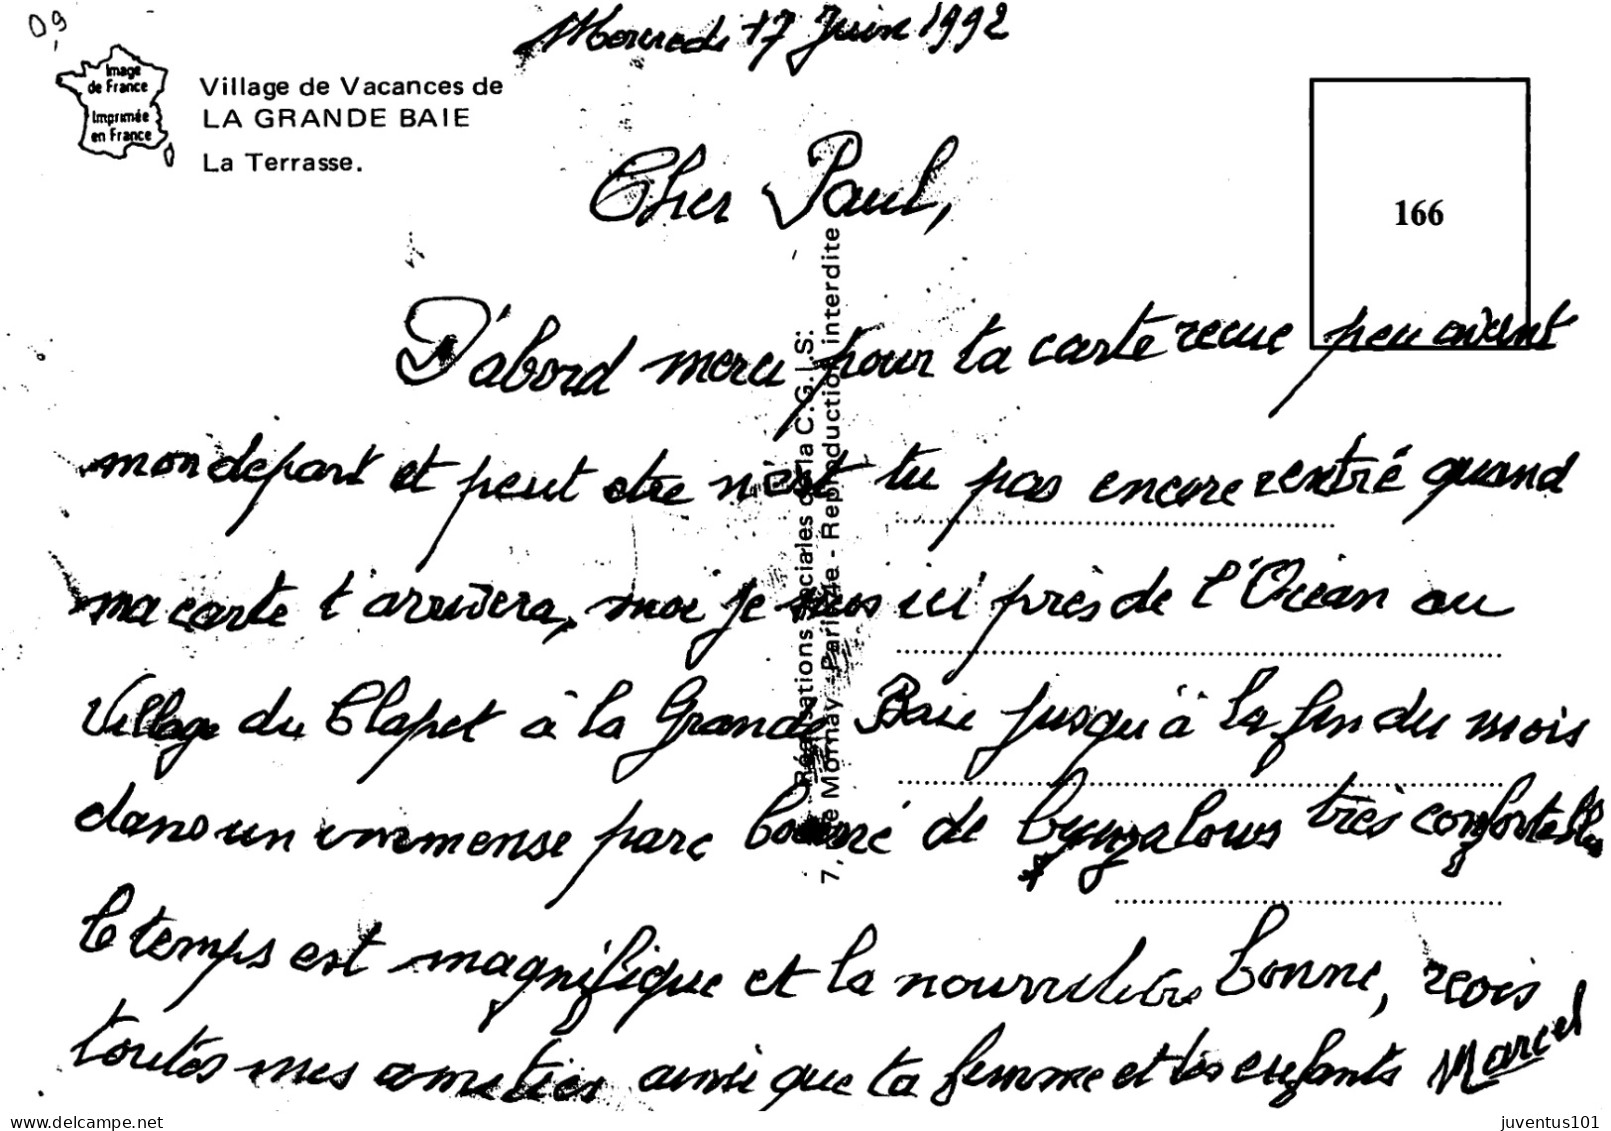 0,9
Mercredi 17 Juin 1992
Image
de France
Imprimée
en France
Village de Vacances de
LA GRANDE BAIE
La Terrasse.
166
Cher Paul,
D'abord merci pour ta carte recue peu avant
mon depart et peut etre n'est tu pas encore rentré quand
ma carte t'arrivera, moi je suis ici près de l'Océan au
Village du Clapet à la Grande Baie jusqu'à la fin du mois
dans un immense parc boisé de bungalows très confortables
le temps est magnifique et la nourriture bonne, recois
toutes mes amities ainsi que ta femme et tes enfants Marcel
Réalisations spéciales de la C.G.I.S.
7, Mornay - Paris - Reproduction interdite
delcampe.net
juventus101